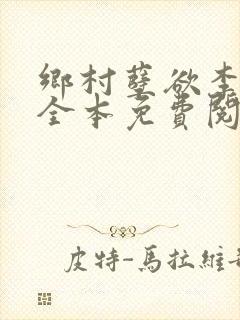 鄉村孽欲李
全本免費閱
皮特-馬拉維